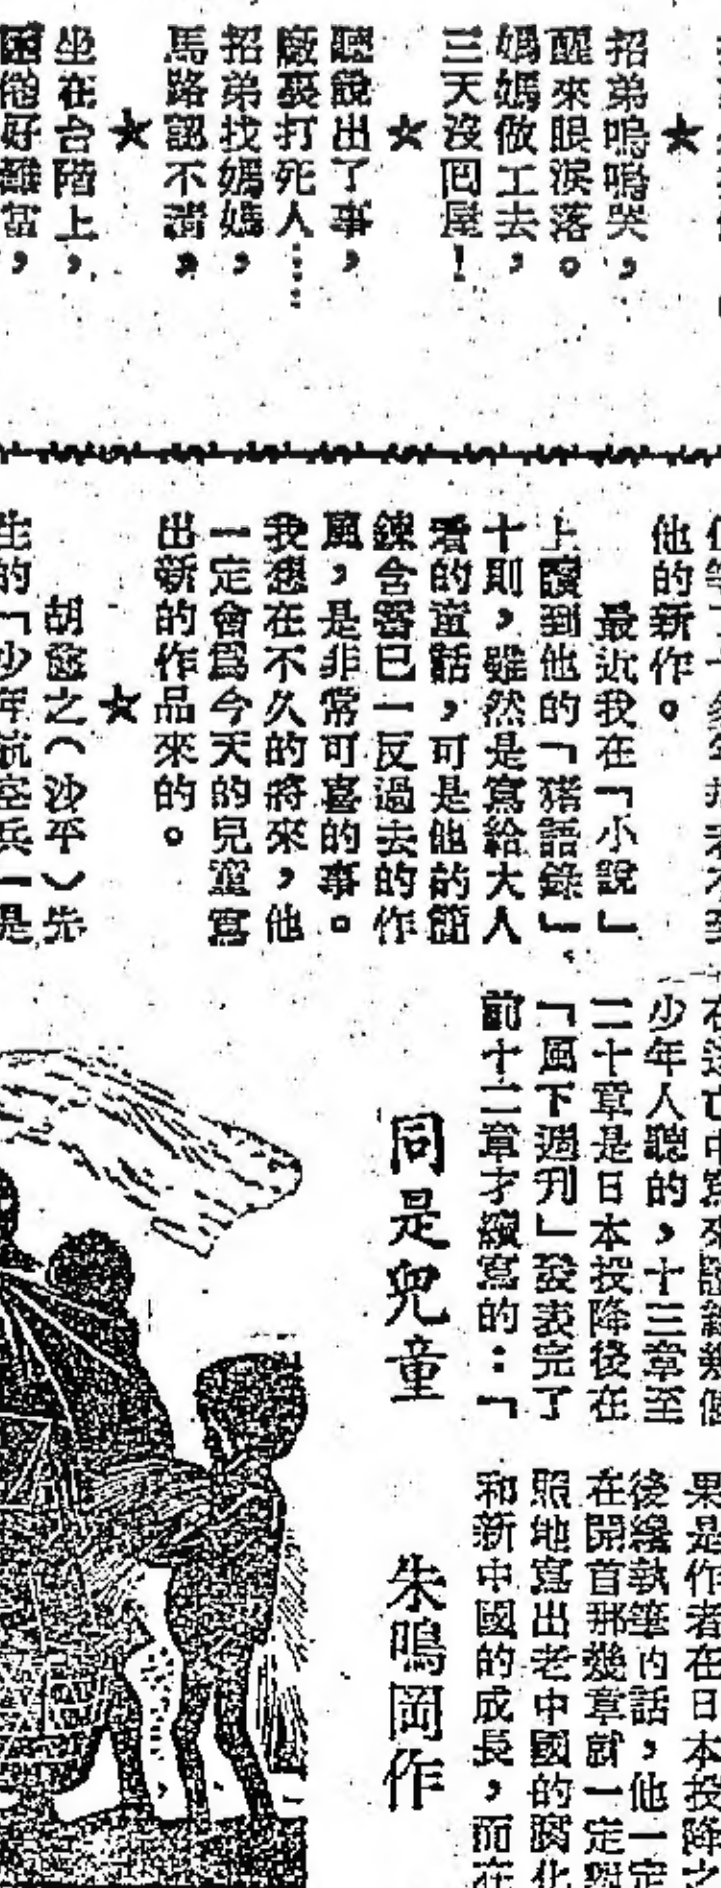 ★
招弟嗚嗚哭，
醒來眼淚落。
媽媽做工去，
三天沒囘屋！
★
聽說出了事，
廠裏打死人……
招弟找媽媽，
馬路認不清，
★
坐在台階上，
他的新作。
最近我在「小說」
上讀到他的「猪語錄」
十則，雖然是寫給大人
看的童話，可是他的簡
鍊含蓄已一反過去的作
風，是非常可喜的事。
我想在不久的將來，他
一定會爲今天的兒童寫
出新的作品來的。
★
胡愈之（沙平）先
生的「少年航空兵」是
少年人聽的，十三章至
二十章是日本投降後在
「風下週刊」發表完了
前十二章才續寫的：「
果是作者在日本投降之
後纔執筆的話，他一定
在開首那幾章就一定對
照地寫出老中國的腐化
和新中國的成長，而在
同是兒童 朱鳴岡作